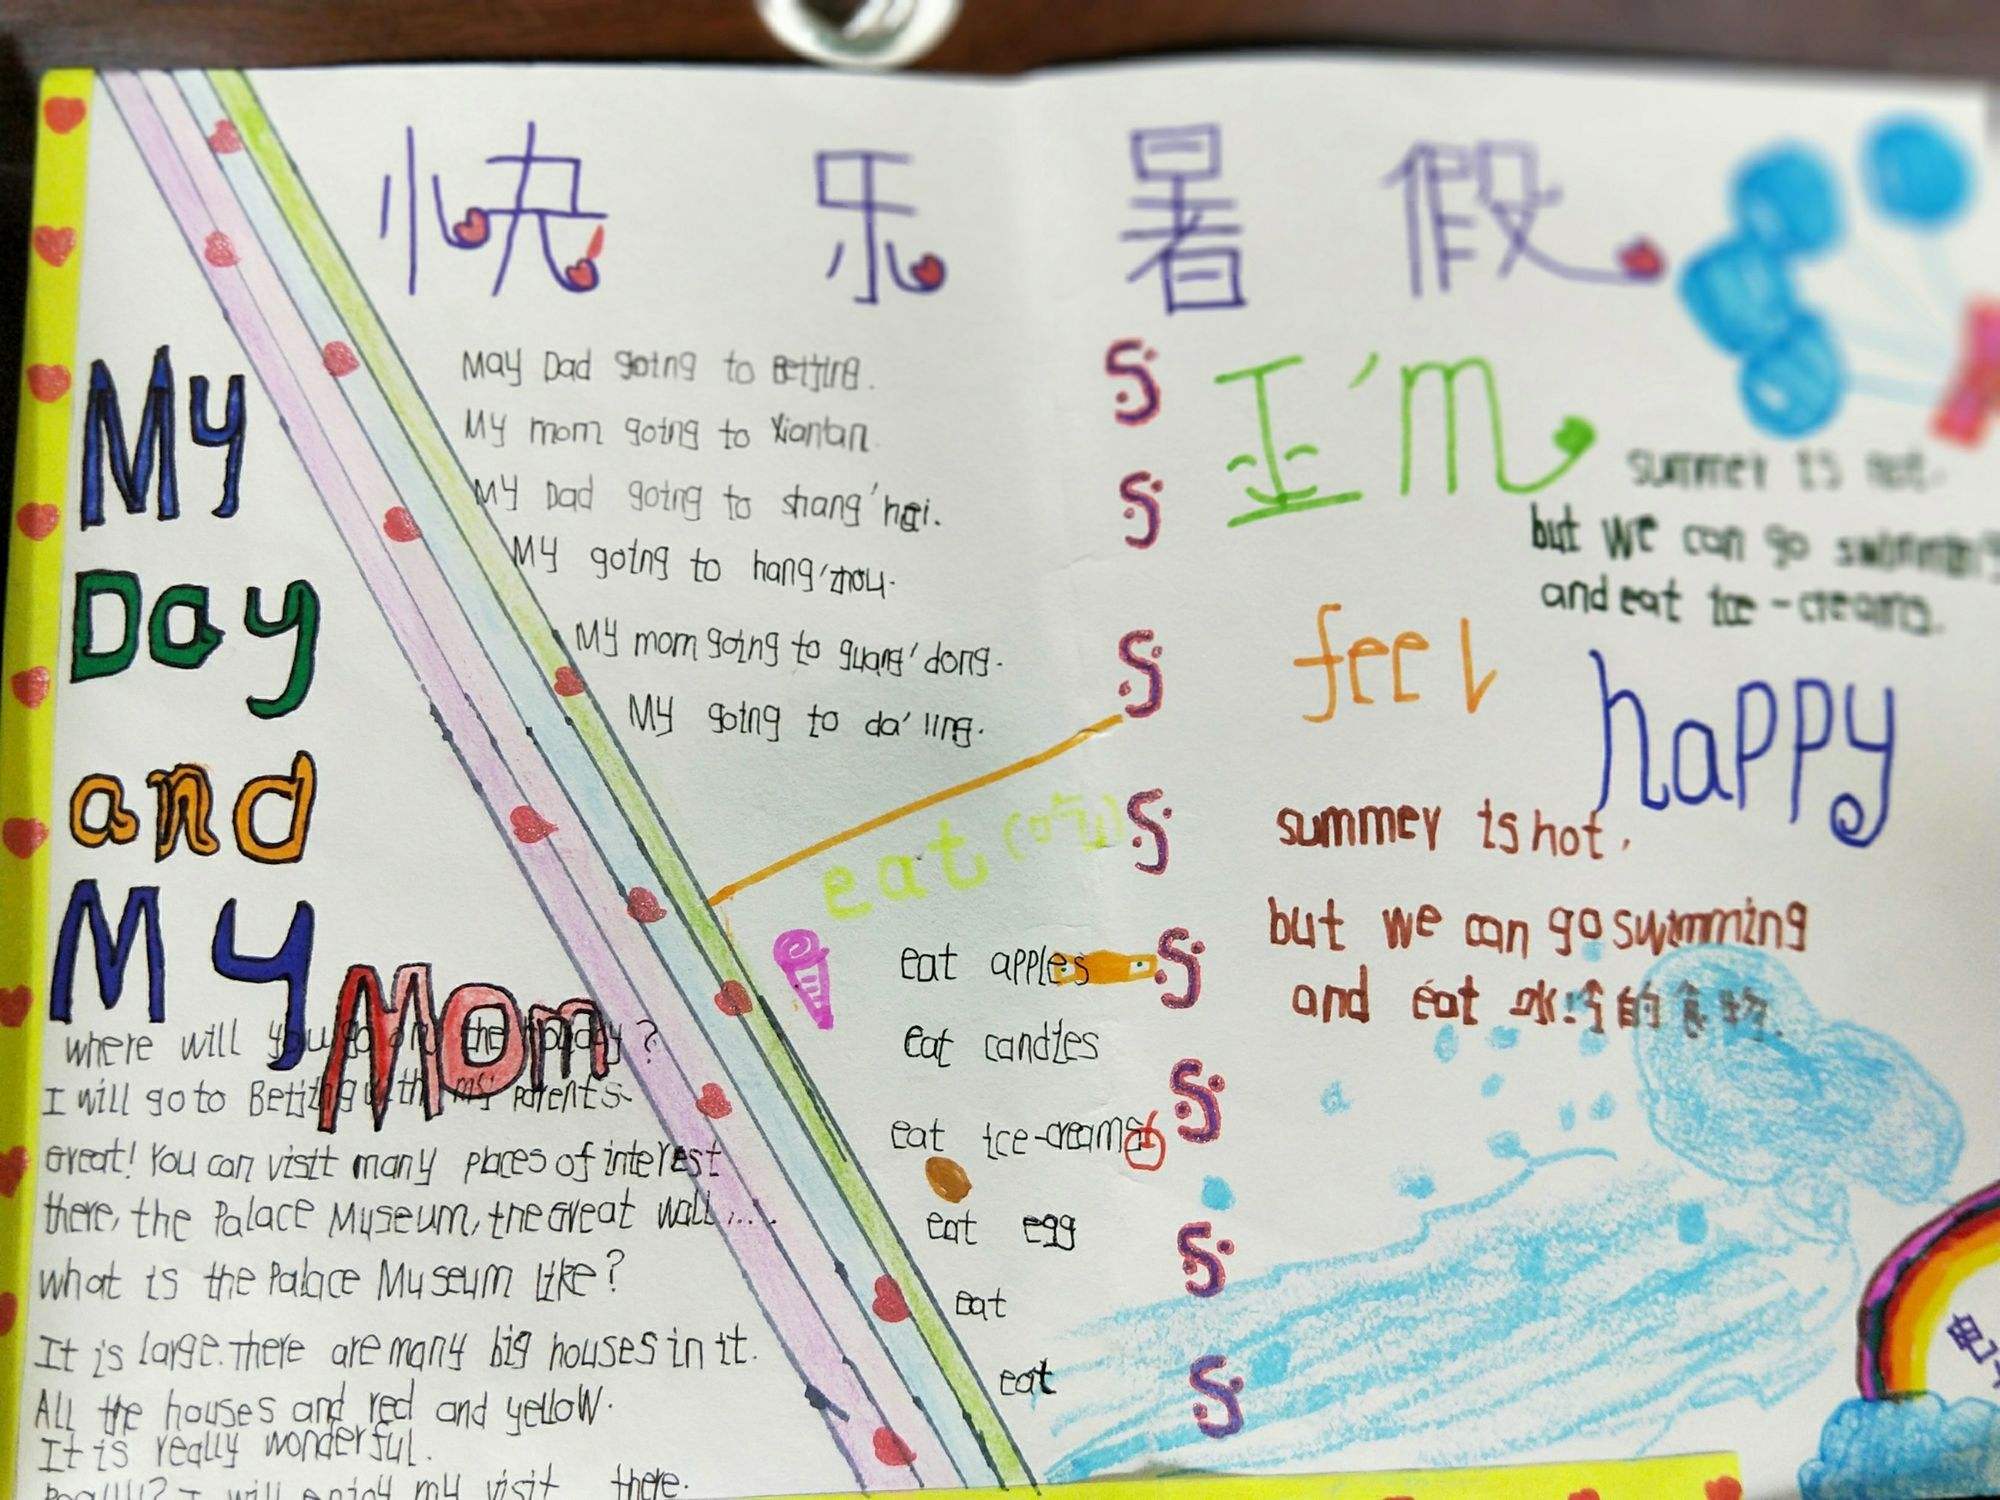 快 乐 暑 假
My
Day
and
My
Mom
May Dad going to Beijing.
My mom going to Xiantan.
My Dad going to shang'hai.
My going to hang'zhou.
My mom going to guang'dong.
My going to da'ling.
eat (吃)
eat apples
eat candies
eat ice-creams
eat egg
eat
eat
I'm
feel
happy
summer is hot.
but we can go swimming
and eat ice-creams.
summer is hot.
but we can go swimming
and eat 冰冷的食物.
where will you go on the holiday?
I will go to Beijing with my parents.
Great! You can visit many places of interest
there, the Palace Museum, the Great wall....
what is the Palace Museum like?
It is large. There are many big houses in it.
All the houses and red and yellow.
It is really wonderful.
Really? I will enjoy my visit there.